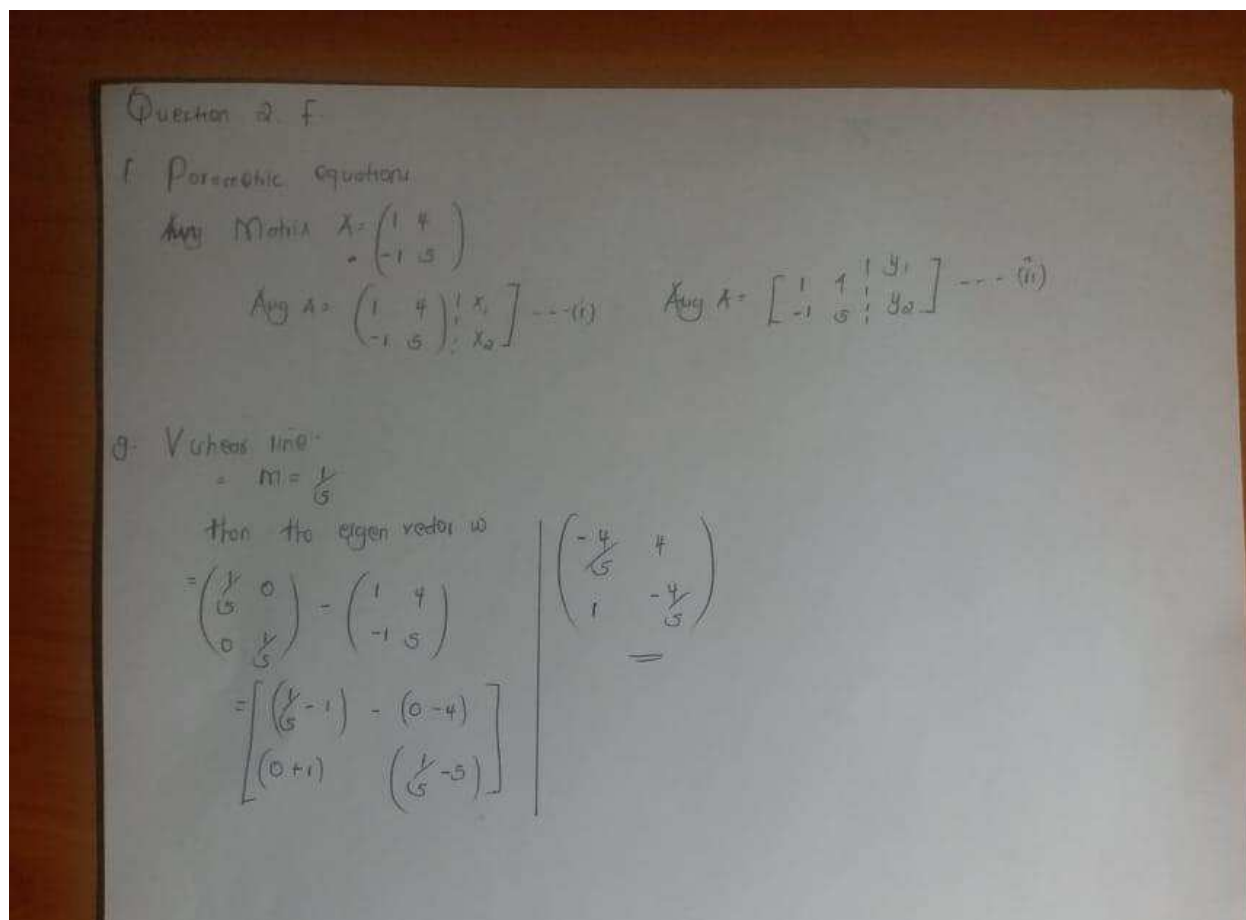 Question 2. f.
f Parametric equations
Aug Matrix A = ( 1 4
-1 5 )
Aug A = ( 1 4 ) ¦ x₁
( -1 5 ) ¦ x₂ ] --- (i)
Aug A = [ 1 4 ¦ y₁
-1 5 ¦ y₂ ] --- (ii)
g. line
= m = 1/5
then the eigen vector w
= ( 1/5 0
0 1/5 ) - ( 1 4
-1 5 )
= [ (1/5 - 1) - (0 - 4)
(0 + 1) (1/5 - 5) ]
( -4/5 4
1 -4/5 )